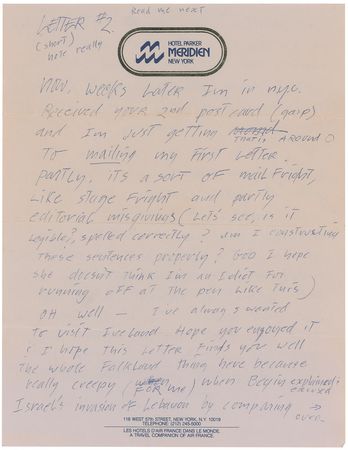 Read me next
LETTER #2
(short)
note really
HOTEL PARKER
MERIDIEN
NEW YORK
Now, weeks later I'm in nyc.
Received your 2nd postcard (gasp)
and I'm just getting around
(that's AROUND)
To mailing my first letter.
partly, it's a sort of mail fright,
like stage fright and partly
editorial misgivings (Let's see, is it
legible?, spelled correctly? Am I constructing
these sentences properly? God I hope
she doesn't think I'm an Idiot for
running off at the pen like this)
OH well - I've always wanted
to visit Ireland Hope you enjoyed it
& I hope this letter finds you well
the whole Falkland thing here became
really creepy (FOR me) when Begin explained
excused
Israel's invasion of Lebanon by comparing →
over
118 WEST 57th STREET, NEW YORK, N.Y. 10019
TELEPHONE: (212) 245-5000
LES HOTELS D'AIR FRANCE DANS LE MONDE.
A TRAVEL COMPANION OF AIR FRANCE.